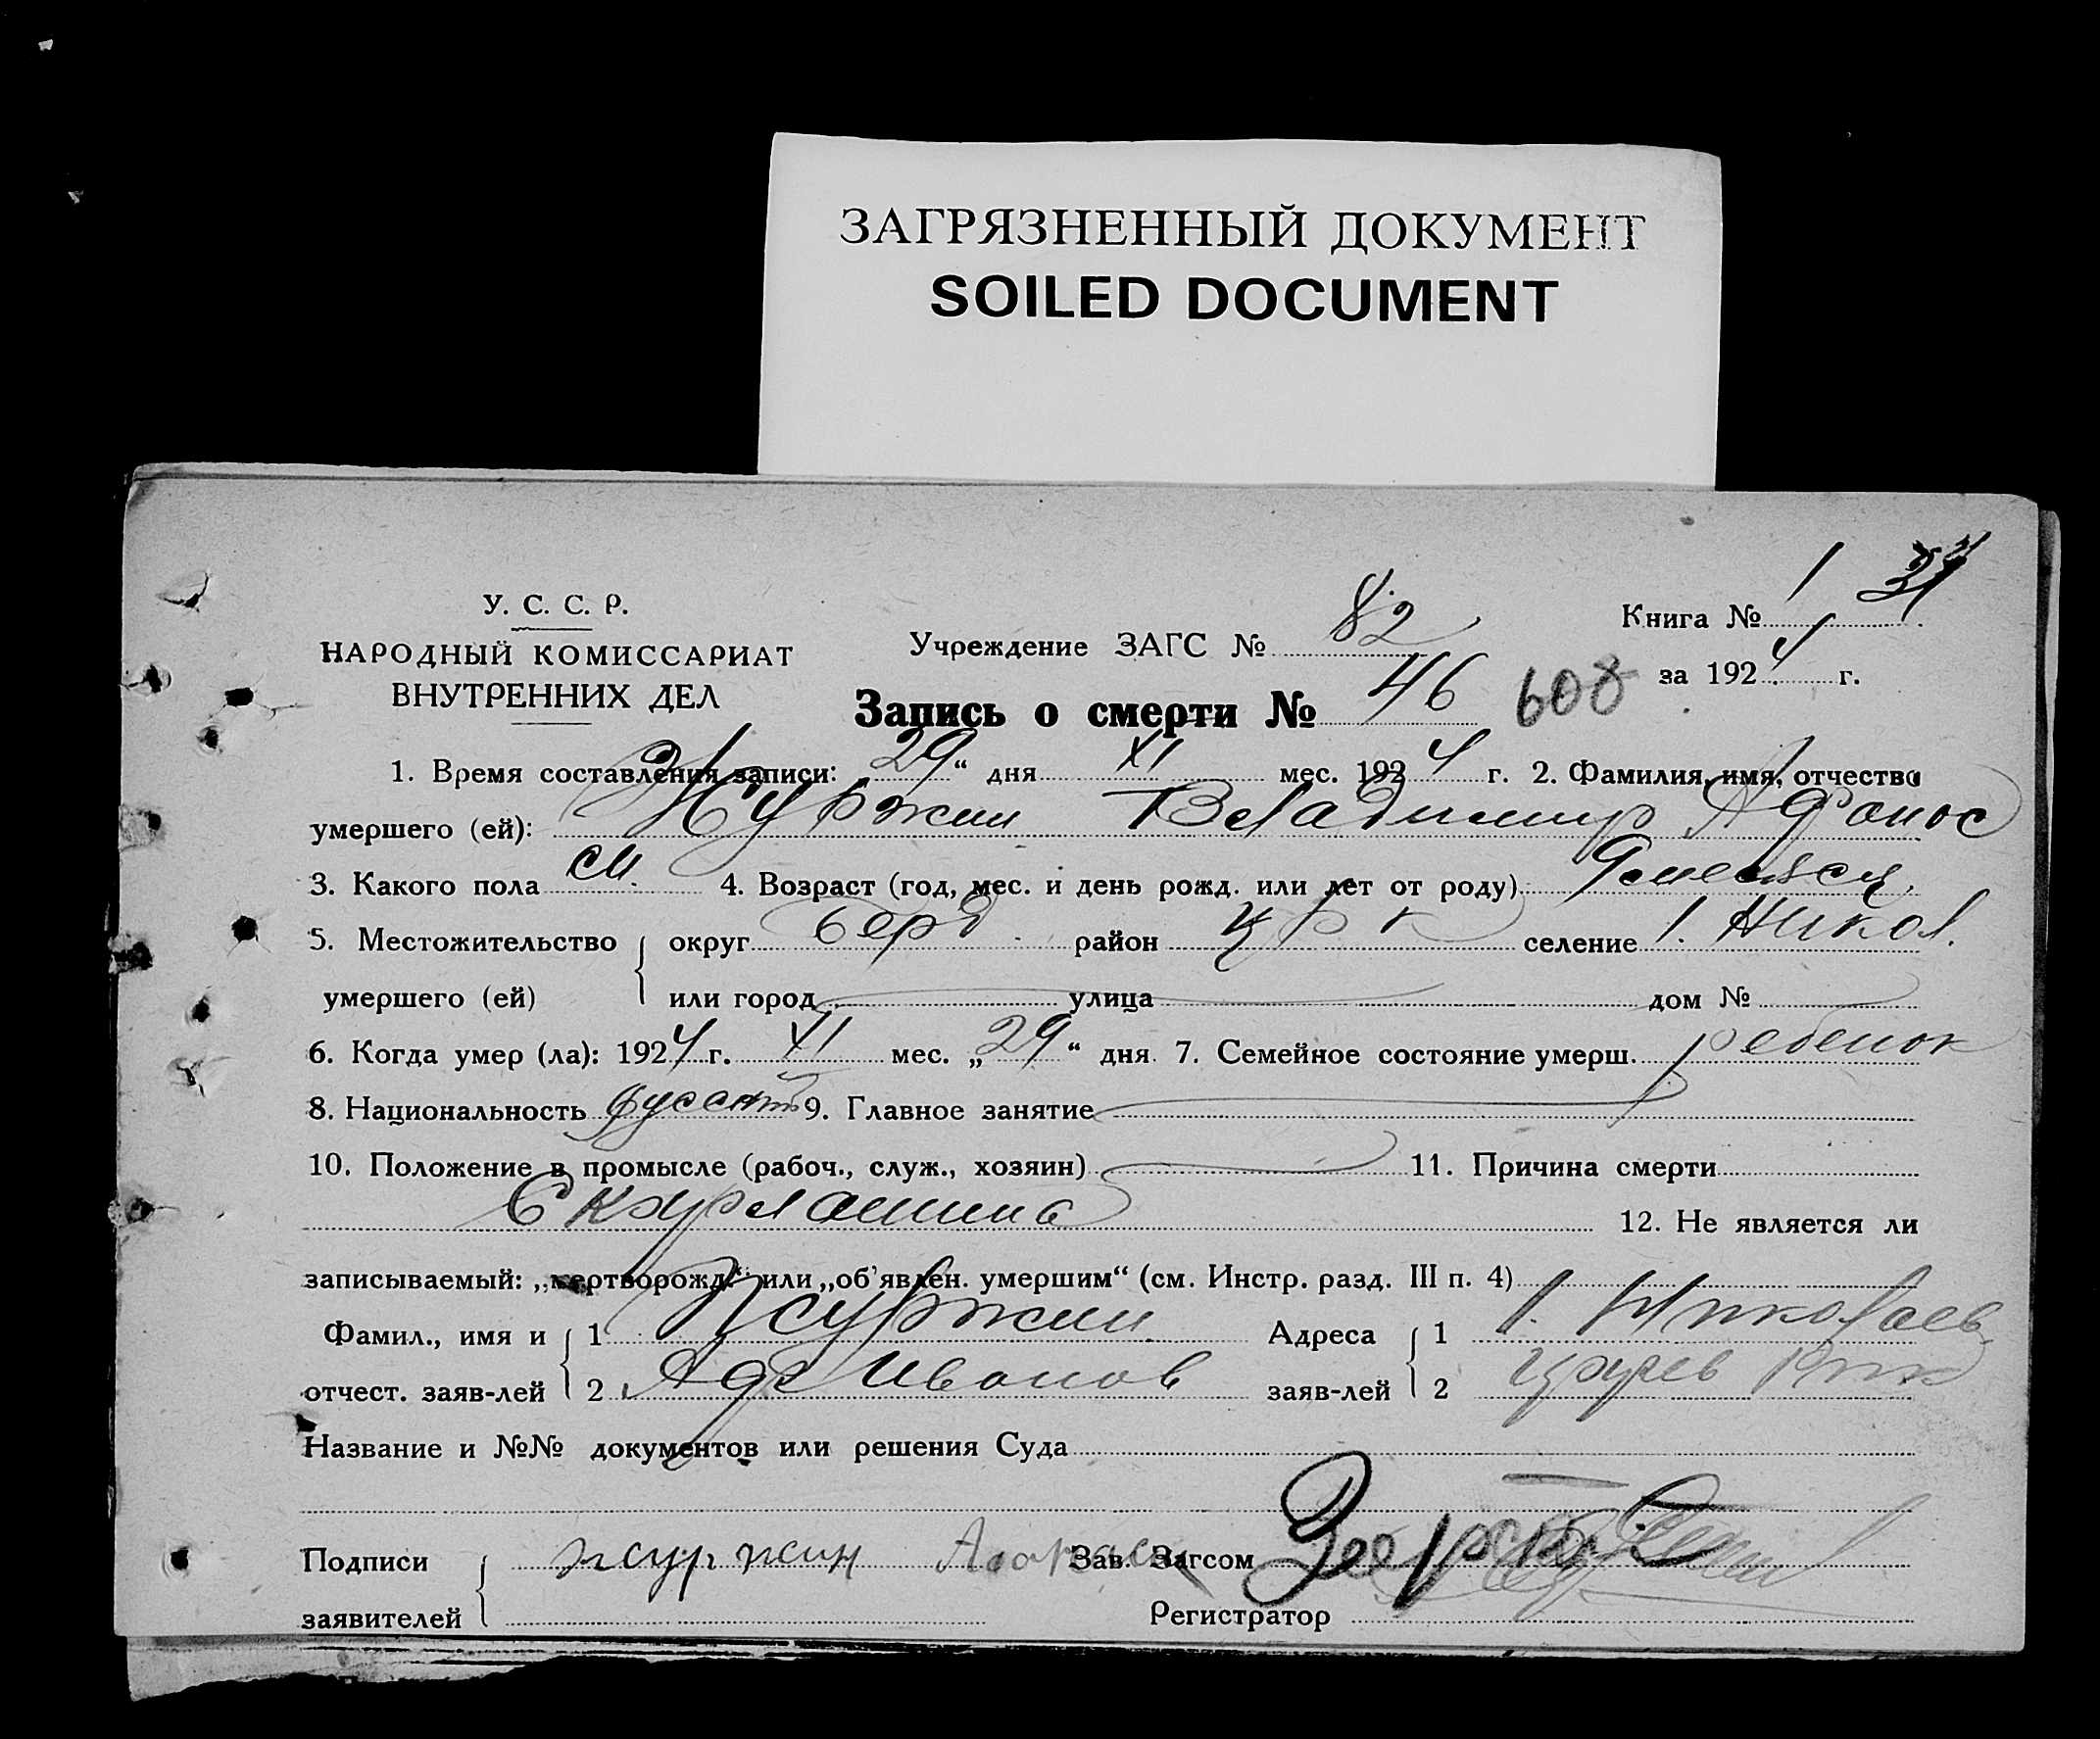 ЗАГРЯЗНЕННЫЙ ДОКУМЕНТ
SOILED DOCUMENT
У. С. С. Р.
НАРОДНЫЙ КОМИССАРИАТ
ВНУТРЕННИХ ДЕЛ
Учреждение ЗАГС № 82
Книга № 1
за 1924 г.
Запись о смерти № 46 608
1. Время составления записи: 29" дня XI мес. 1924 г. 2. Фамилия, имя, отчество
умершего (ей): Журжин Владимир Афонос
3. Какого пола м. 4. Возраст (год, мес. и день рожд. или лет от роду)
5. Местожительство округ Берд район селение Никол.
умершего (ей) или город улица дом №
6. Когда умер (ла): 1924 г. XI мес. „29" дня 7. Семейное состояние умерш. ребенок
8. Национальность русский 9. Главное занятие
10. Положение в промысле (рабоч., служ., хозяин) 11. Причина смерти
Скурлатина 12. Не является ли
записываемый: „мертворожд." или „об'явлен. умершим" (см. Инстр. разд. III п. 4)
Фамил., имя и 1 Журжин Адреса 1 Николаев
отчест. заяв-лей 2 Иванов заяв-лей 2
Название и №№ документов или решения Суда
Подписи журжин Зав. Загсом
заявителей Регистратор